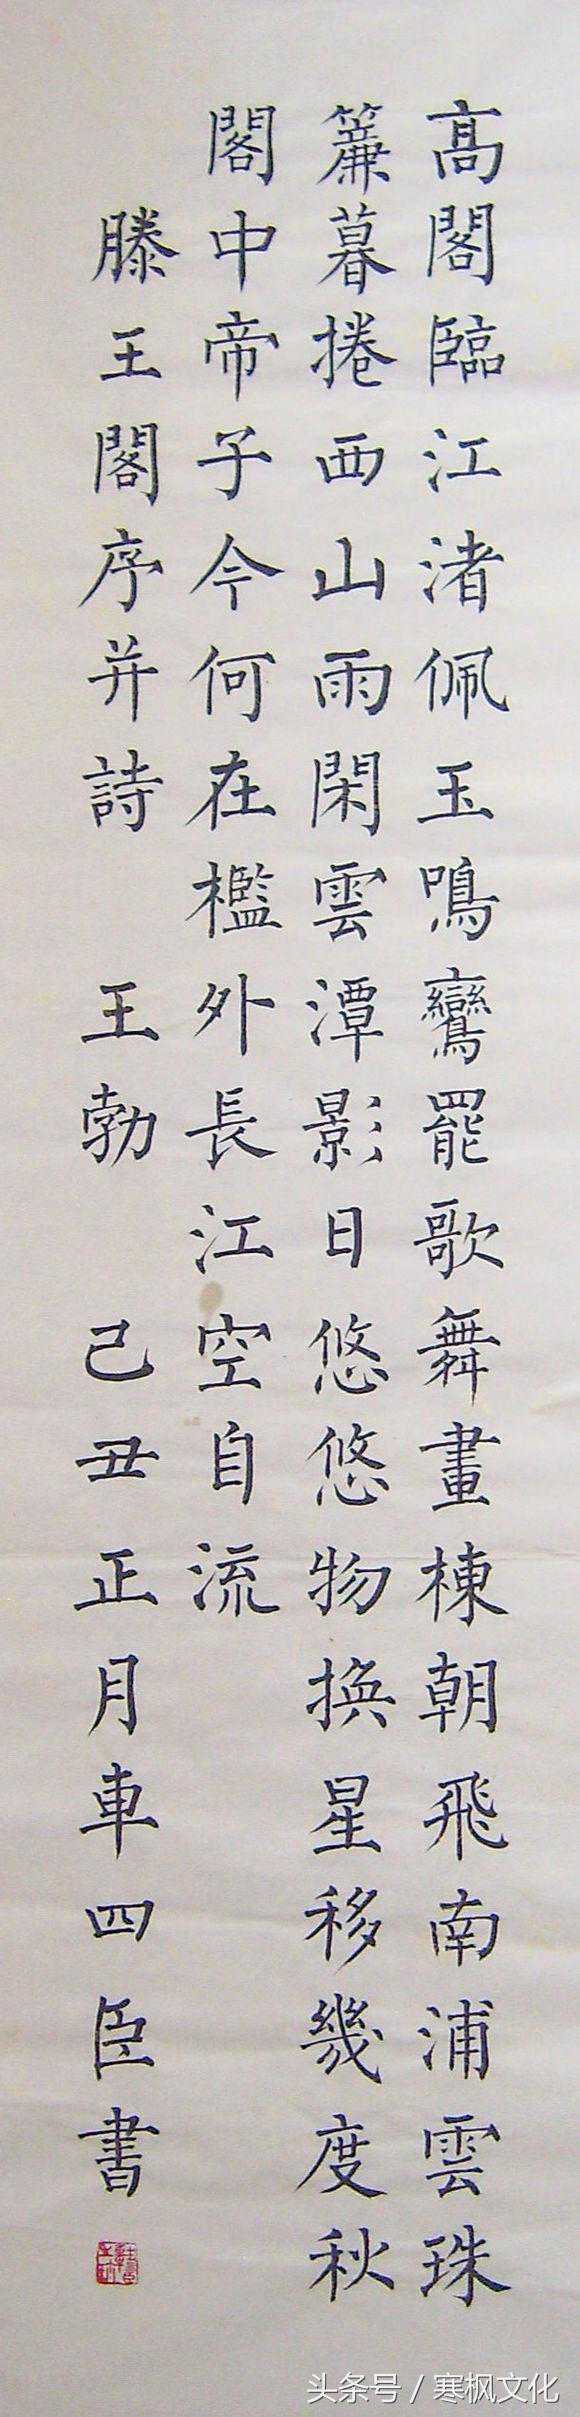 高閣臨江渚佩玉鳴鸞罷歌舞畫棟朝飛南浦雲珠
簾暮捲西山雨閑雲潭影日悠悠物換星移幾度秋
閣中帝子今何在檻外長江空自流
滕王閣序并詩 王勃 己丑正月車四臣書
头条号 / 寒枫文化